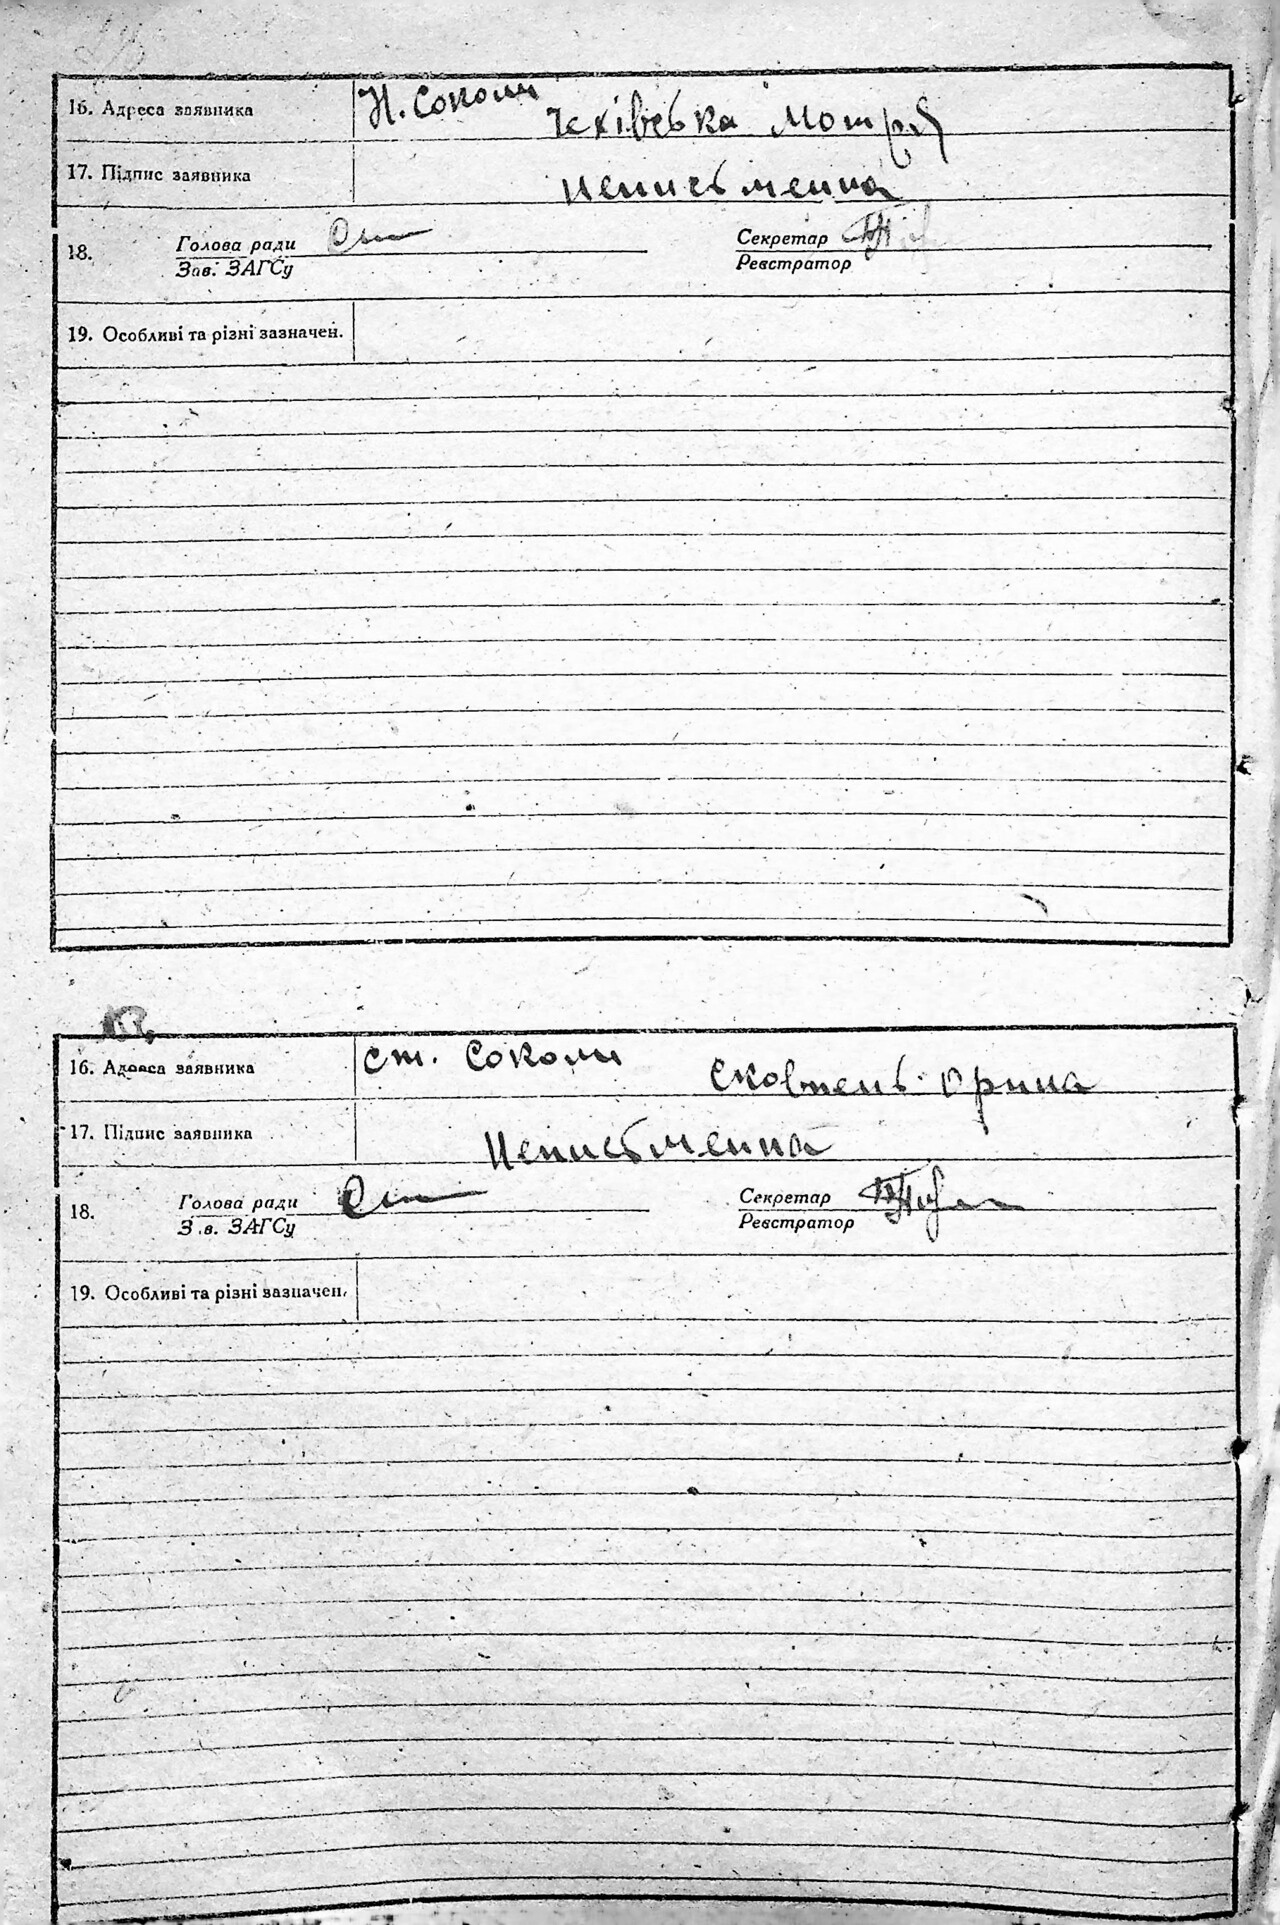 16. Адреса заявника Н. Соколи
Чехівська Мотря
17. Підпис заявника неписьменна
18. Голова ради Секретар
Зав. ЗАГСу Реєстратор
19. Особливі та різні зазначен.
16. Адреса заявника ст. Соколи
Сковтень Орина
17. Підпис заявника Неписьменна
18. Голова ради Секретар
Зав. ЗАГСу Реєстратор
19. Особливі та різні зазначен.